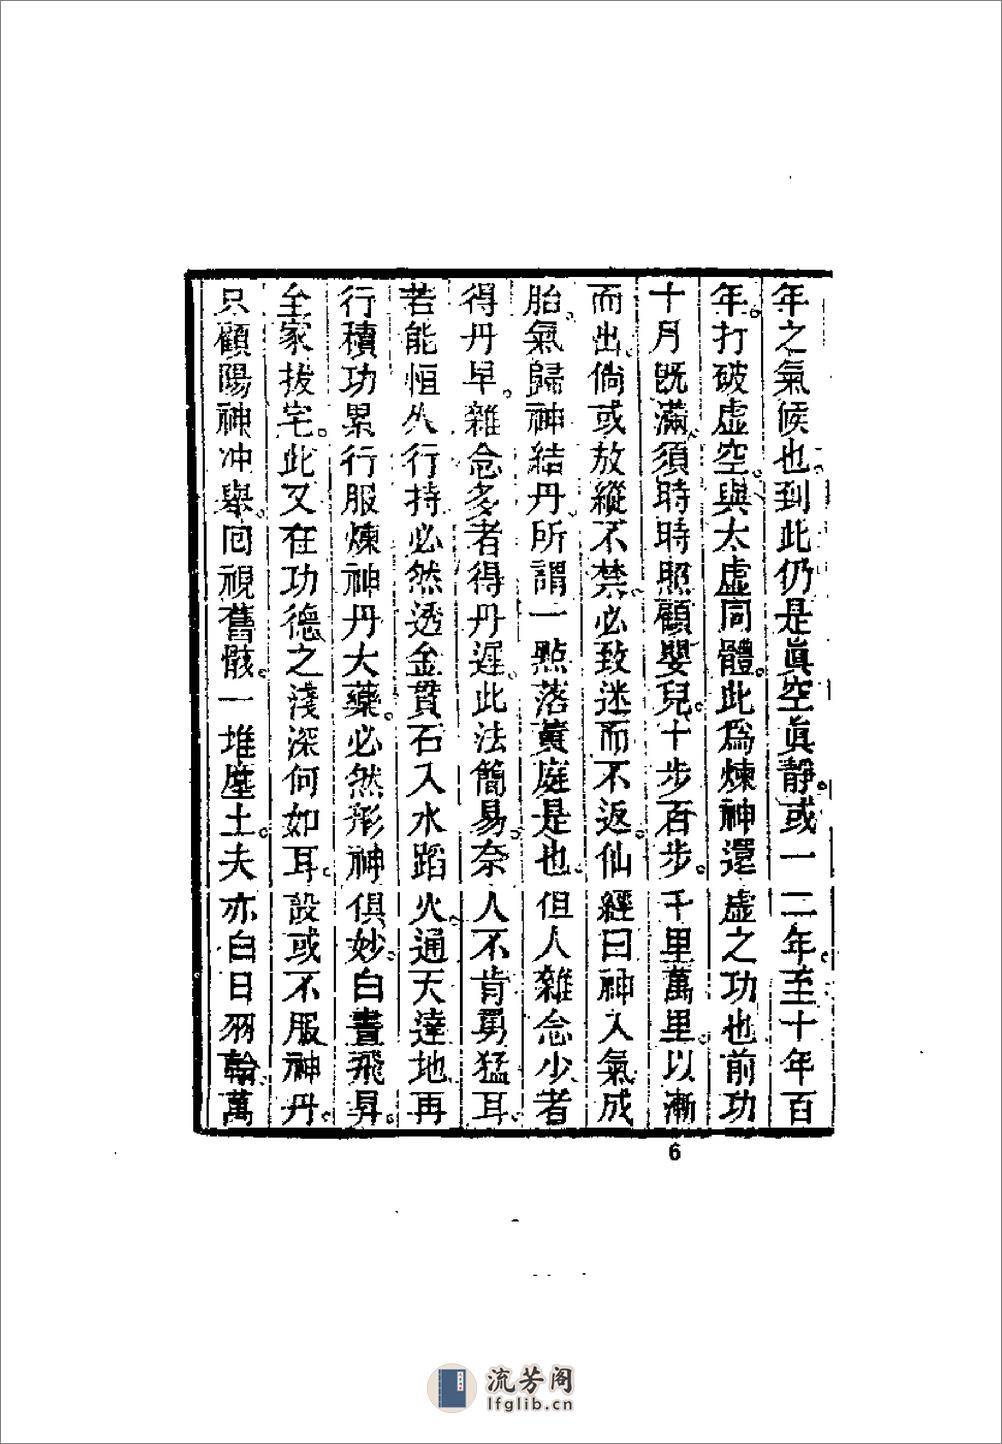 年之氣候也。到此仍是眞空眞靜。或一二年。至十年百
年。打破虛空。與太虛同體。此爲煉神還虛之功也前功
十月既滿、須時時照顧嬰兒。十步百步。千里萬里。以漸
而出。倘或放縱不禁。必致迷而不返。仙經曰神入氣成
胎。氣歸神結丹。所謂一點落黃庭是也。但人雜念少者
得丹早。雜念多者得丹遲。此法簡易。奈人不肯勇猛耳。
若能恒久行持必然透金貫石入水蹈火、通天達地再
行積功累行服煉神丹大藥。必然形神俱妙。白晝飛昇。
全家拔宅。此又在功德之淺深何如耳。設或不服神丹。
只顧陽神冲舉。回視舊骸。一堆塵土。夫亦白日羽翰。萬
6
流芳阁
lfglib.cn